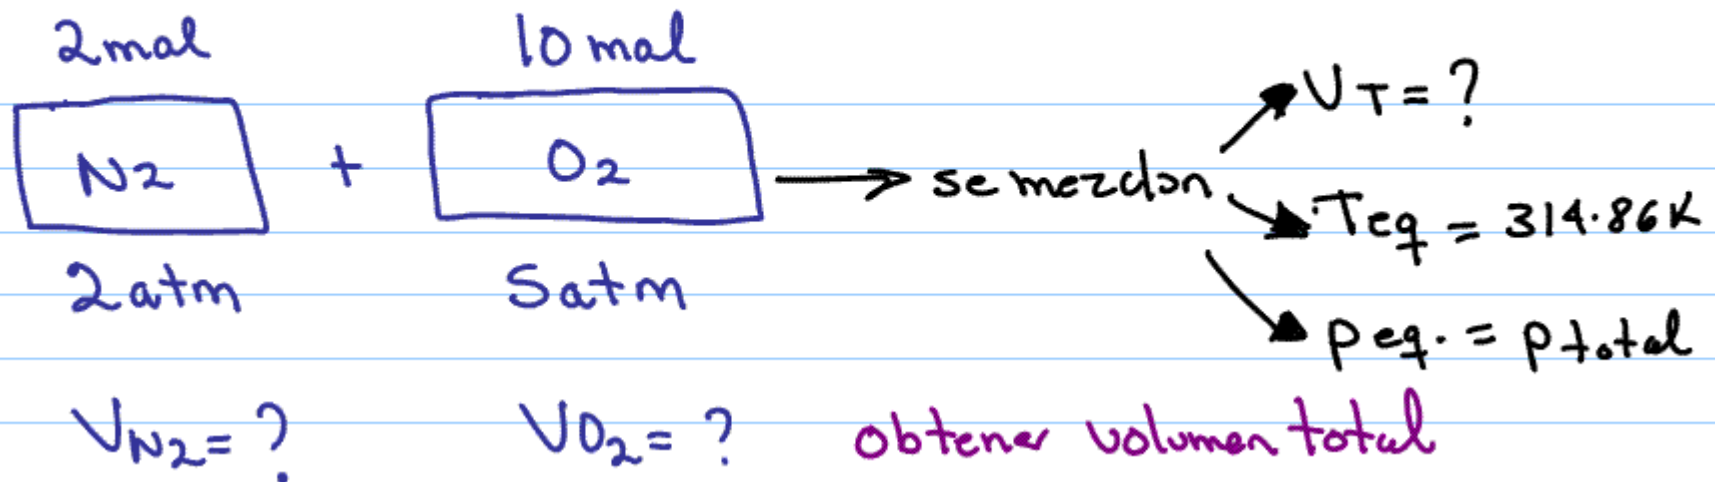 2mol 10 mol
N2 + O2 → se mezclan
VT = ?
Teq = 314.86K
2atm 5atm
Peq. = Ptotal
VN2 = ? VO2 = ? obtener volumen total